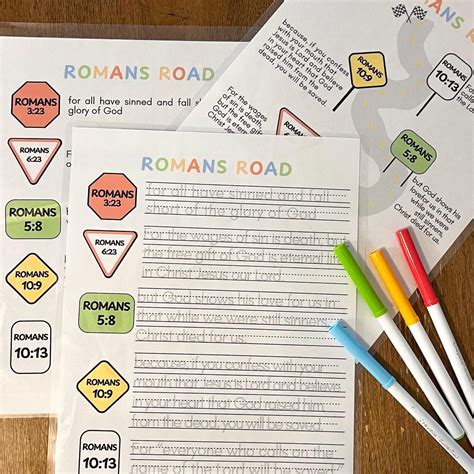 ROMANS ROAD
ROMANS
3:23
for all have sinned and fall s
glory of God
ROMANS
6:23
ROMANS
5:8
ROMANS
10:9
ROMANS
10:13
because, if you confess
with your mouth that
Jesus is Lord and believe
in your heart that God
raised him from the
dead, you will be saved.
ROMANS
10:9
ROMANS
10:13
For the wages
of sin is death,
but the free gift
of God is eternal
Christ Jesus
ROMANS
5:8
but God shows his
love for us in that
while we were
still sinners,
Christ died for us.
ROMANS ROAD
ROMANS
3:23
for all have sinned and fall
short of the glory of God
ROMANS
6:23
For the wages of sin is death, but
the free gift of God is eternal life
in Christ Jesus our Lord
ROMANS
5:8
but God shows his love for us in
that while we were still sinners,
Christ died for us.
ROMANS
10:9
because, if you confess with your
mouth that Jesus is Lord and believe
in your heart that God raised him
from the dead, you will be saved.
ROMANS
10:13
For "everyone who calls on the
name of the Lord will be saved